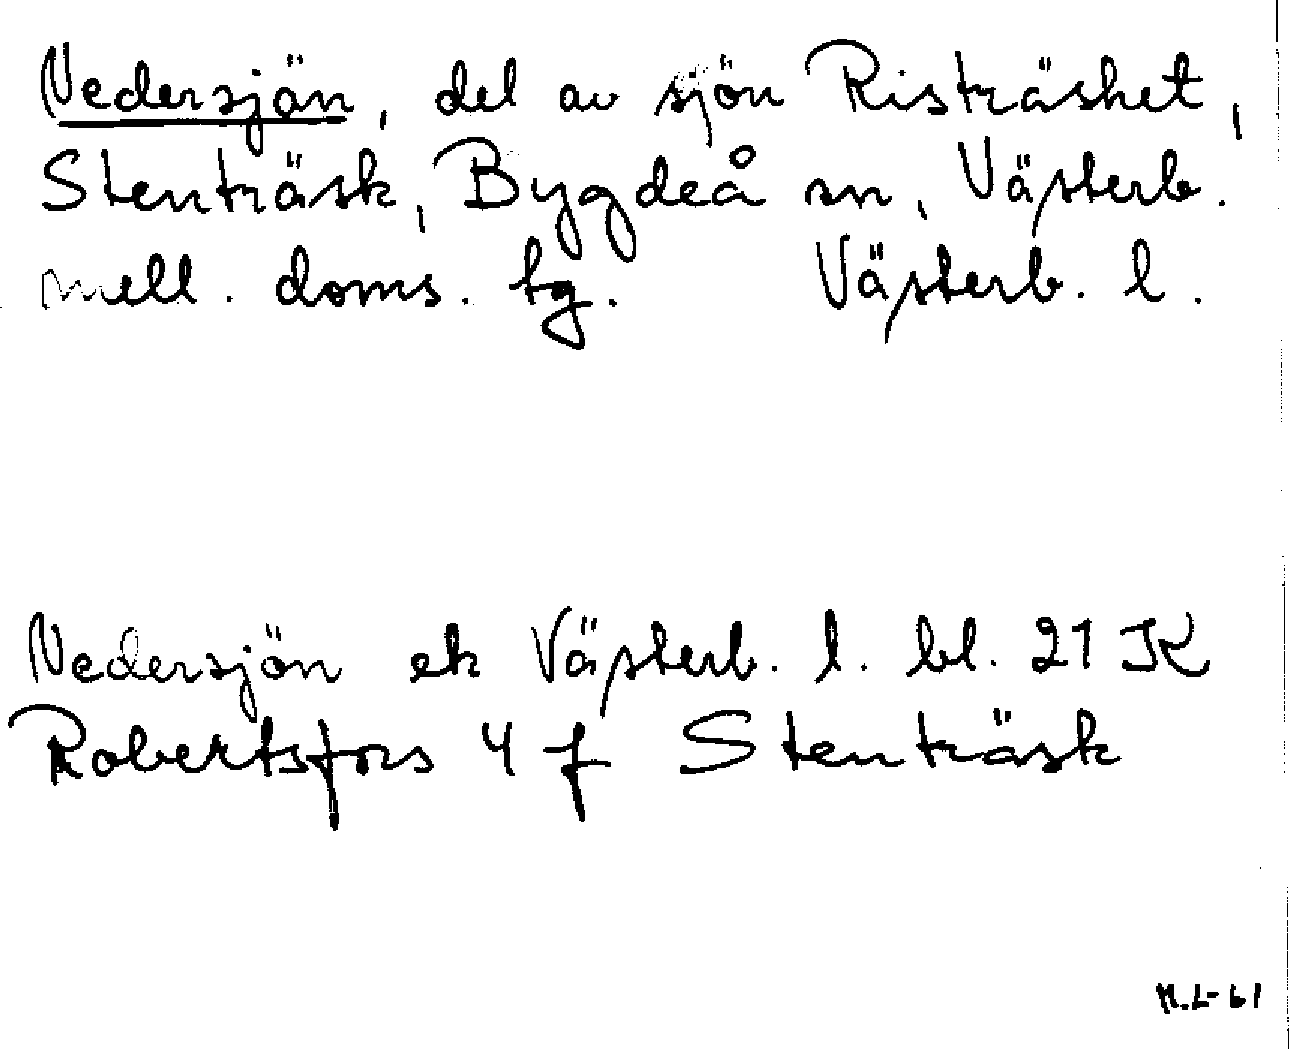 Nedersjön, del av sjön Risträsket,
Stenträsk, Bygdeå sn, Västerb.
mell. doms. tg. Västerb. l.
Nedersjön ek Västerb. l. bl. 21 K
Robertsfors 4 f Stenträsk
M.L-61